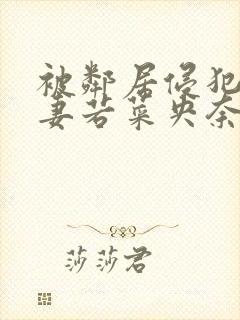 被鄰居侵犯
妻若菜央奈
莎莎君